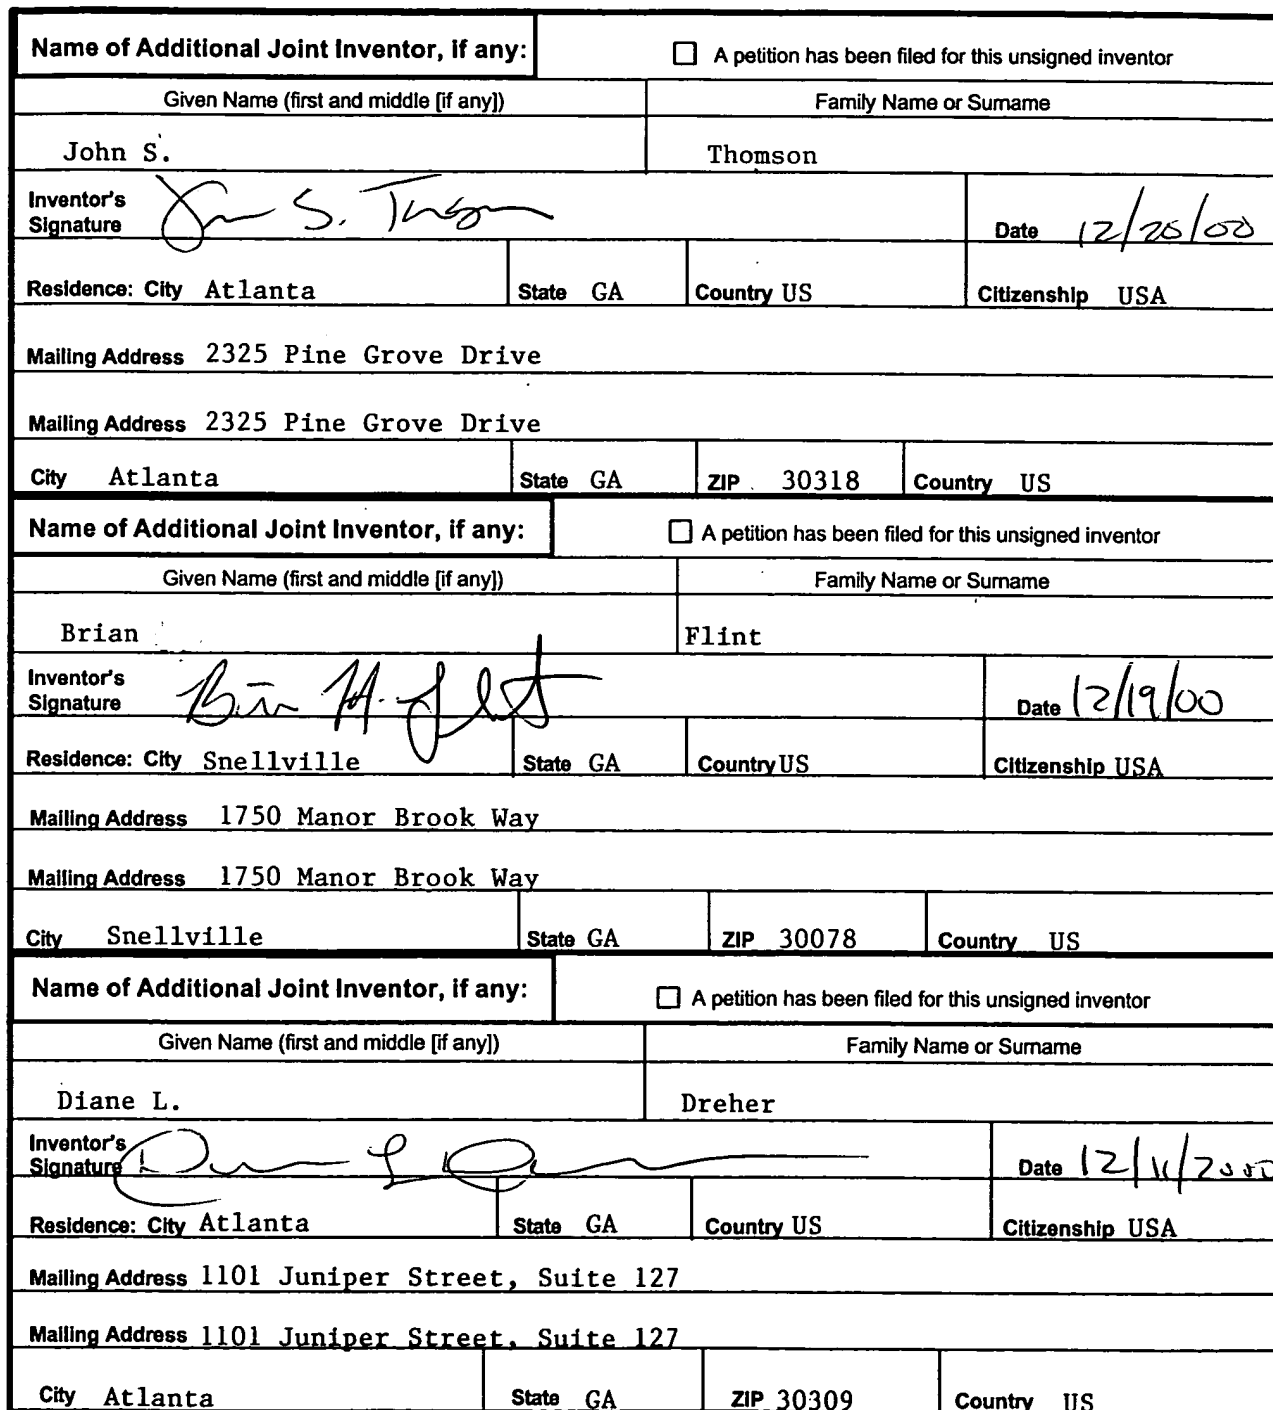 Name of Additional Joint Inventor, if any: ☐ A petition has been filed for this unsigned inventor
Given Name (first and middle [if any]) Family Name or Surname
John S. Thomson
Inventor's Signature John S. Thomson Date 12/20/00
Residence: City Atlanta State GA Country US Citizenship USA
Mailing Address 2325 Pine Grove Drive
Mailing Address 2325 Pine Grove Drive
City Atlanta State GA ZIP 30318 Country US
Name of Additional Joint Inventor, if any: ☐ A petition has been filed for this unsigned inventor
Given Name (first and middle [if any]) Family Name or Surname
Brian Flint
Inventor's Signature Brian H. Flint Date 12/19/00
Residence: City Snellville State GA Country US Citizenship USA
Mailing Address 1750 Manor Brook Way
Mailing Address 1750 Manor Brook Way
City Snellville State GA ZIP 30078 Country US
Name of Additional Joint Inventor, if any: ☐ A petition has been filed for this unsigned inventor
Given Name (first and middle [if any]) Family Name or Surname
Diane L. Dreher
Inventor's Signature Date 12/11/2000
Residence: City Atlanta State GA Country US Citizenship USA
Mailing Address 1101 Juniper Street, Suite 127
Mailing Address 1101 Juniper Street, Suite 127
City Atlanta State GA ZIP 30309 Country US